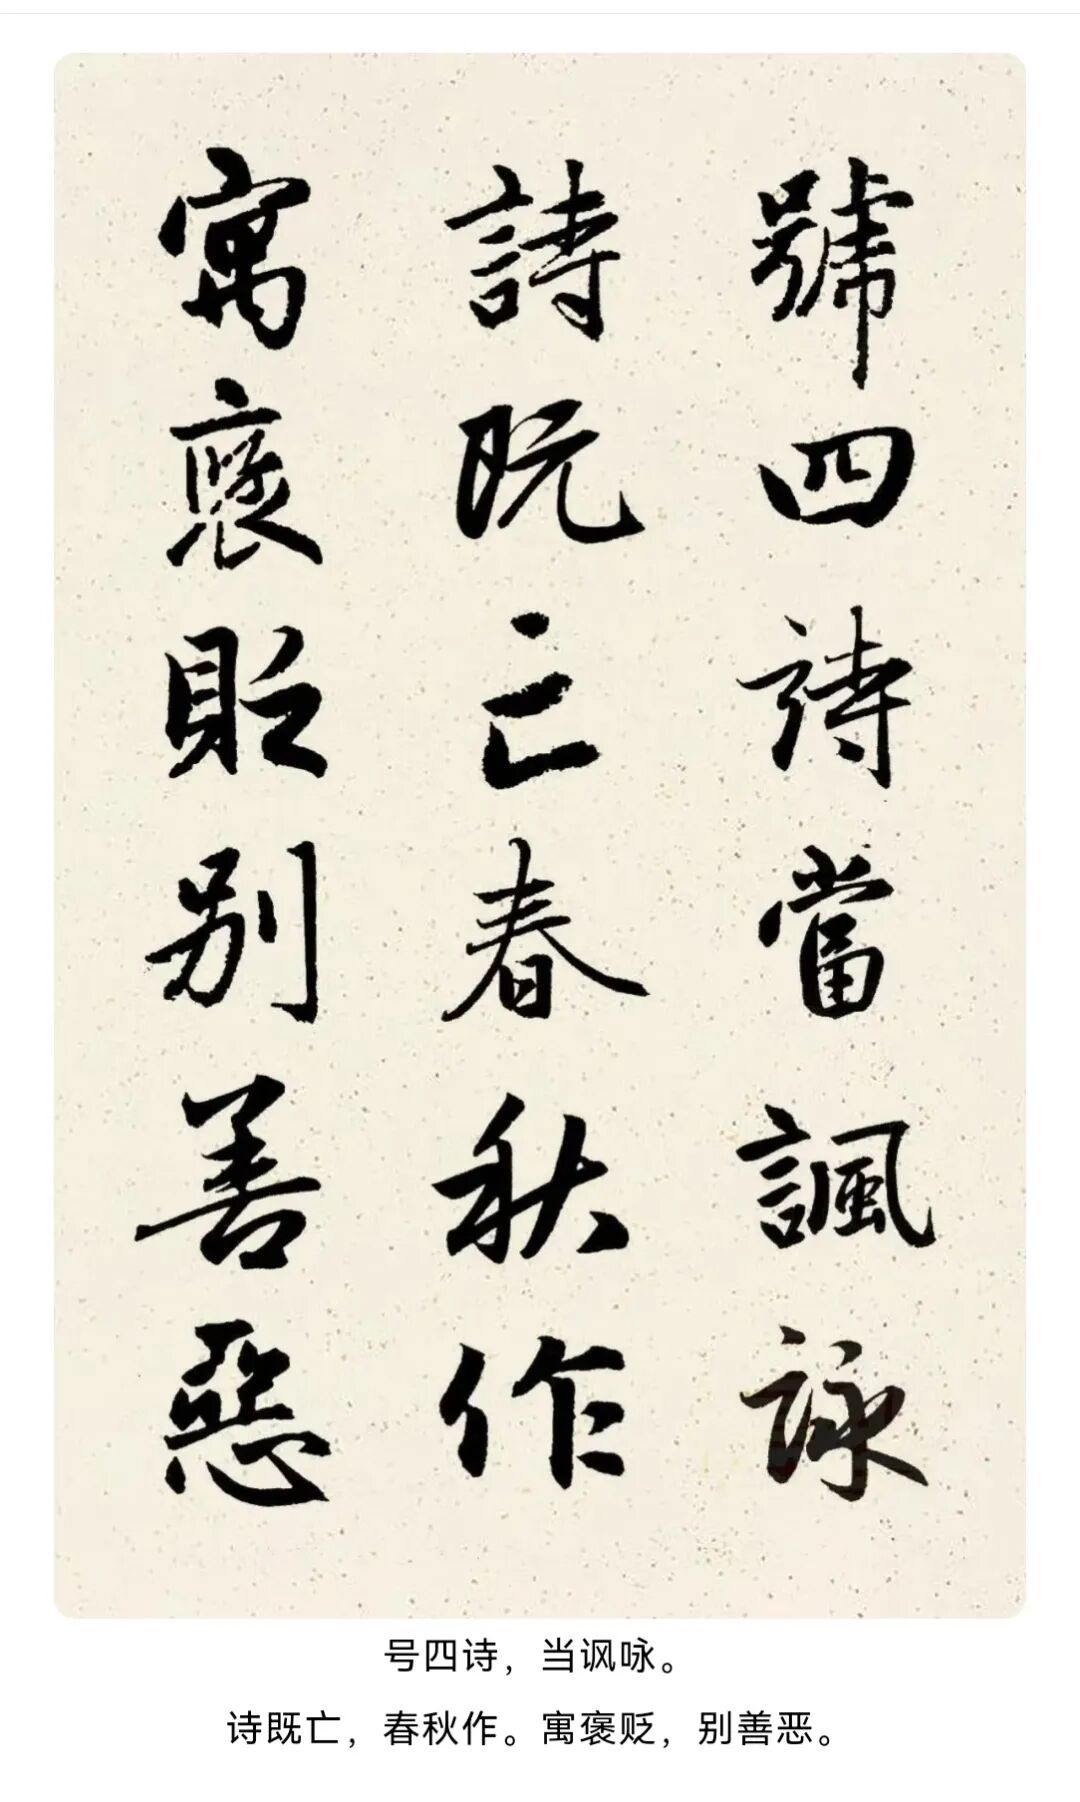 號四詩當諷詠
詩既亡春秋作
寓褒貶別善惡
号四诗，当讽咏。
诗既亡，春秋作。寓褒贬，别善恶。